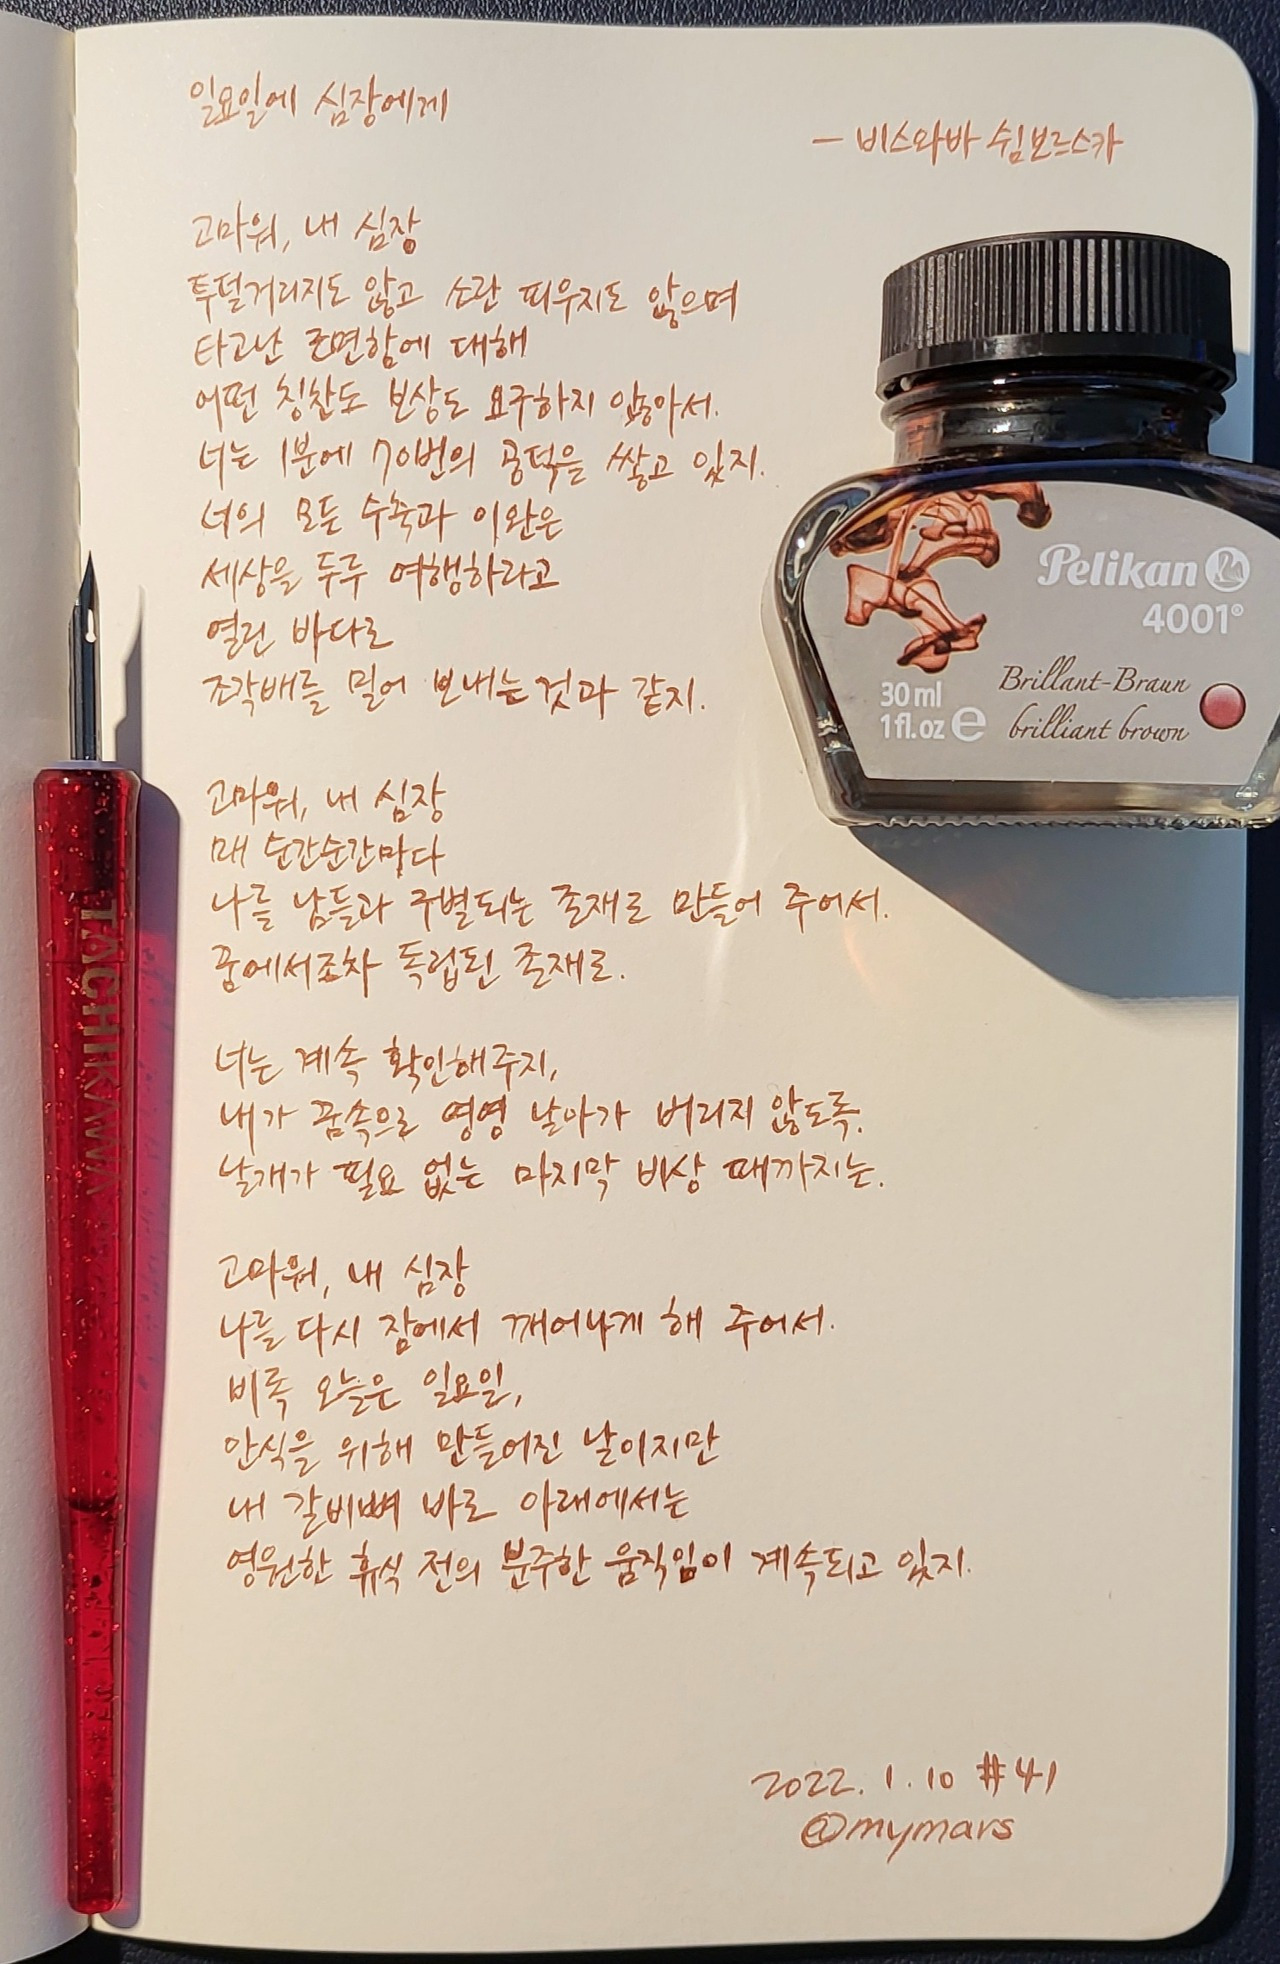 일요일에 심장에게
— 비스와바 쉼보르스카
고마워, 내 심장
투덜거리지도 않고 소란 피우지도 않으며
타고난 근면함에 대해
어떤 칭찬도 보상도 요구하지 않아서.
너는 1분에 70번의 공덕을 쌓고 있지.
너의 모든 수축과 이완은
세상을 두루 여행하라고
열린 바다로
조각배를 밀어 보내는 것과 같지.
고마워, 내 심장
매 순간순간마다
나를 남들과 구별되는 존재로 만들어 주어서.
꿈에서조차 독립된 존재로.
너는 계속 확인해주지,
내가 꿈속으로 영영 날아가 버리지 않도록.
날개가 필요 없는 마지막 비상 때까지는.
고마워, 내 심장
나를 다시 잠에서 깨어나게 해 주어서.
비록 오늘은 일요일,
안식을 위해 만들어진 날이지만
내 갈비뼈 바로 아래에서는
영원한 휴식 전의 분주한 움직임이 계속되고 있지.
2022. 1. 10 #41
@mymars
Pelikan
4001®
Brillant-Braun
brilliant brown
30 ml
1 fl. oz e
TACHIKAWA